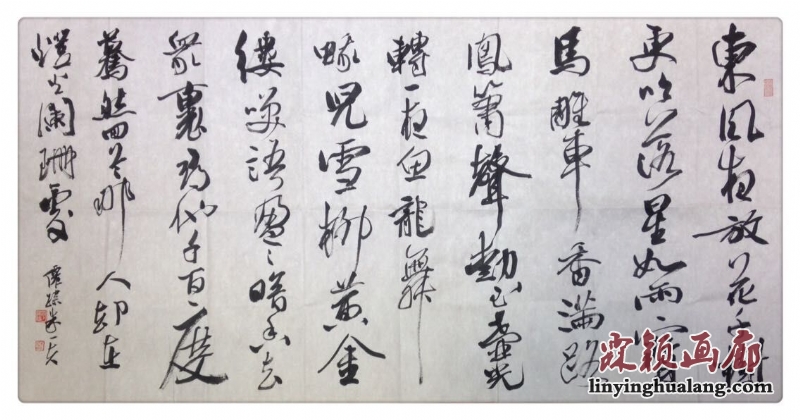 東風夜放花千樹
更吹落星如雨寶
馬雕車香滿路
鳳簫聲動玉壺光
轉一夜魚龍舞
蛾兒雪柳黃金
縷笑語盈々暗香去
眾裏尋他千百度
驀然回首那人卻在
燈火闌珊處
霖颖画廊
linyinghualang.com